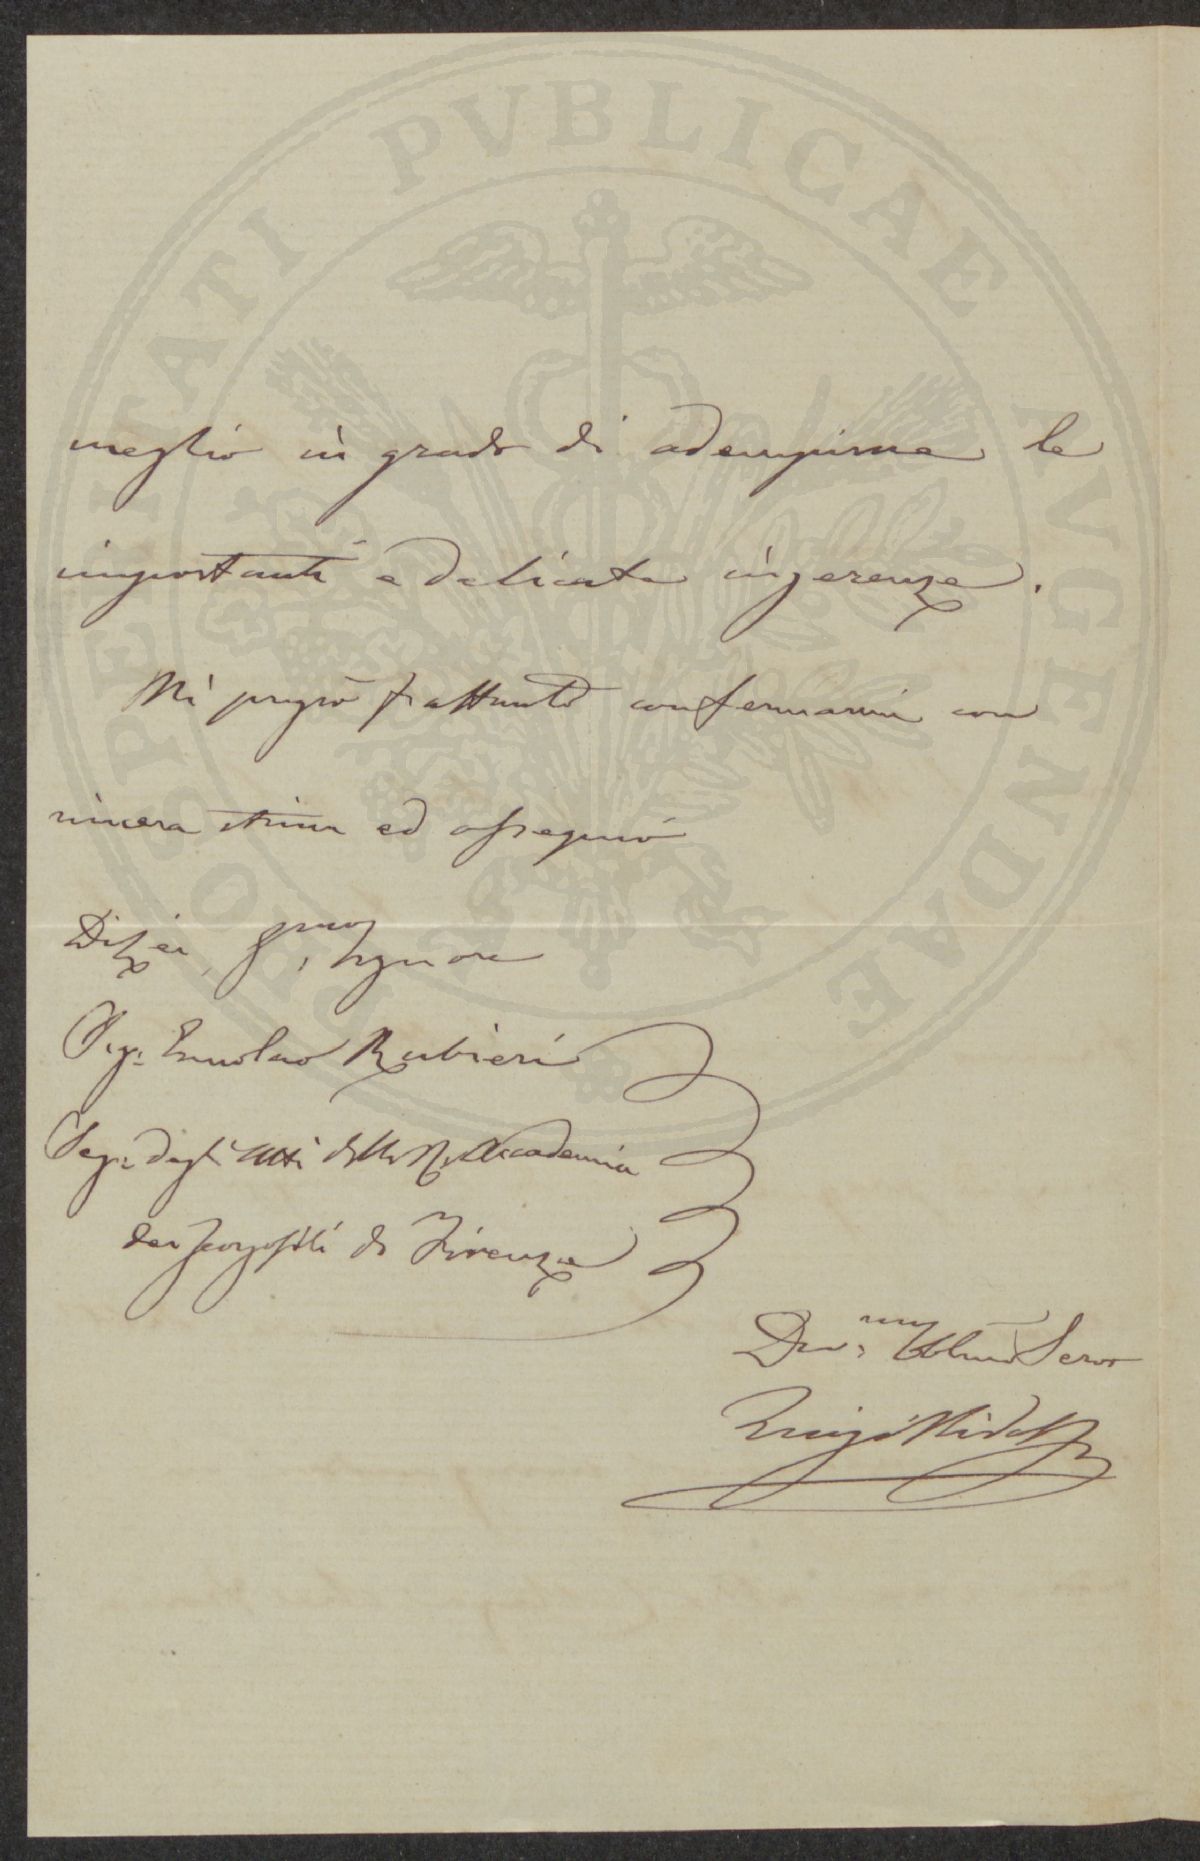 PROSPERITATI PVBLICAE AVGENDAE
meglio in grado di adempirne le
importanti e delicate ingerenze.
Mi pregio frattanto confermarmi con
sincera stima ed ossequio
Di Lei, Signore
Sig: Ermolao Rubieri
Seg: degli Atti della R. Accademia
dei Georgofili di Firenze
Dev.mo Obbmo Servo
Luigi Ridolfi